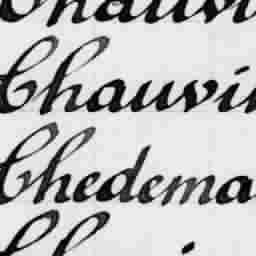 Chauvi
Chauvin
Chedema